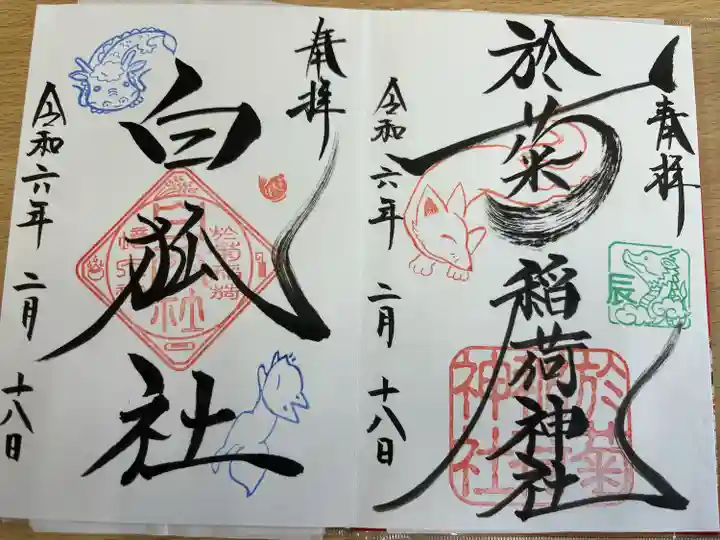 奉拝
於菊稲荷神社
辰
於菊
稲荷
神社
令和六年 二月 十八日
奉拝
白狐社
於菊稲荷
令和六年 二月 十八日